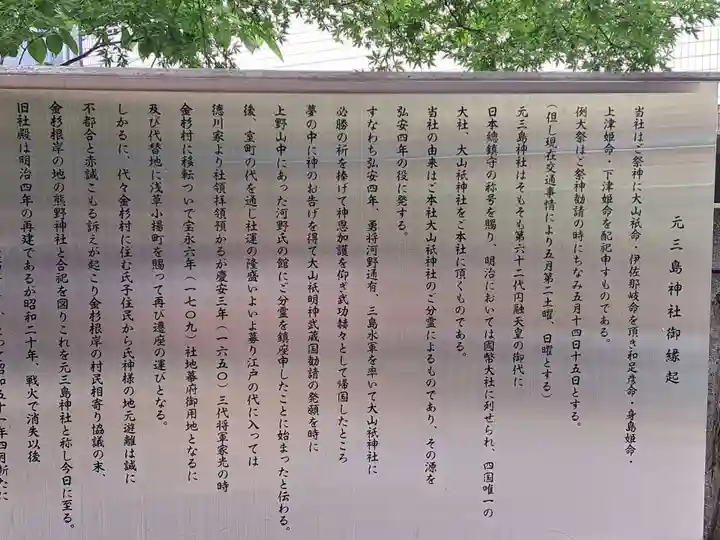 元三島神社御縁起
当社はご祭神に大山祇命・伊佐那岐命を頂き和足彦命・身島姫命・
上津姫命・下津姫命を配祀申すものである。
例大祭はご祭神勧請の時にちなみ五月十四日十五日とする。
(但し現在交通事情により五月第二土曜、日曜とする)
元三島神社はそもそも第六十二代円融天皇の御代に
日本總鎮守の称号を賜り、明治においては國幣大社に列せられ、四国唯一の
大社、大山祇神社をご本社に頂くものである。
当社の由来はご本社大山祇神社のご分霊によるものであり、その源を
弘安四年の役に発する。
すなわち弘安四年、勇将河野通有、三島水軍を率いて大山祇神社に
必勝の祈を捧げて神恩加護を仰ぎ武功赫々として帰国したところ
夢の中に神のお告げを得て大山祇明神武蔵国勧請の発願を時に
上野山中にあった河野氏の館にご分霊を鎮座申したことに始まったと伝わる。
後、室町の代を通じ社運の隆盛いよいよ募り江戸の代に入っては
徳川家より社領拝領預かるが慶安三年(一六五〇)三代将軍家光の時
金杉村に移転ついで宝永六年(一七〇九)社地幕府御用地となるに
及び代替地に浅草小揚町を賜って再び遷座の運びとなる。
しかるに、代々金杉村に住む氏子住民から氏神様の地元遊離は誠に
不都合と赤誠こもる訴えが起こり金杉根岸の村民相寄り協議の末、
金杉根岸の地の熊野神社と合祀を図りこれを元三島神社と称し今日に至る。
旧社殿は明治四年の再建であるが昭和二十年、戦火で消失以後
昭和五十一年四月新たに